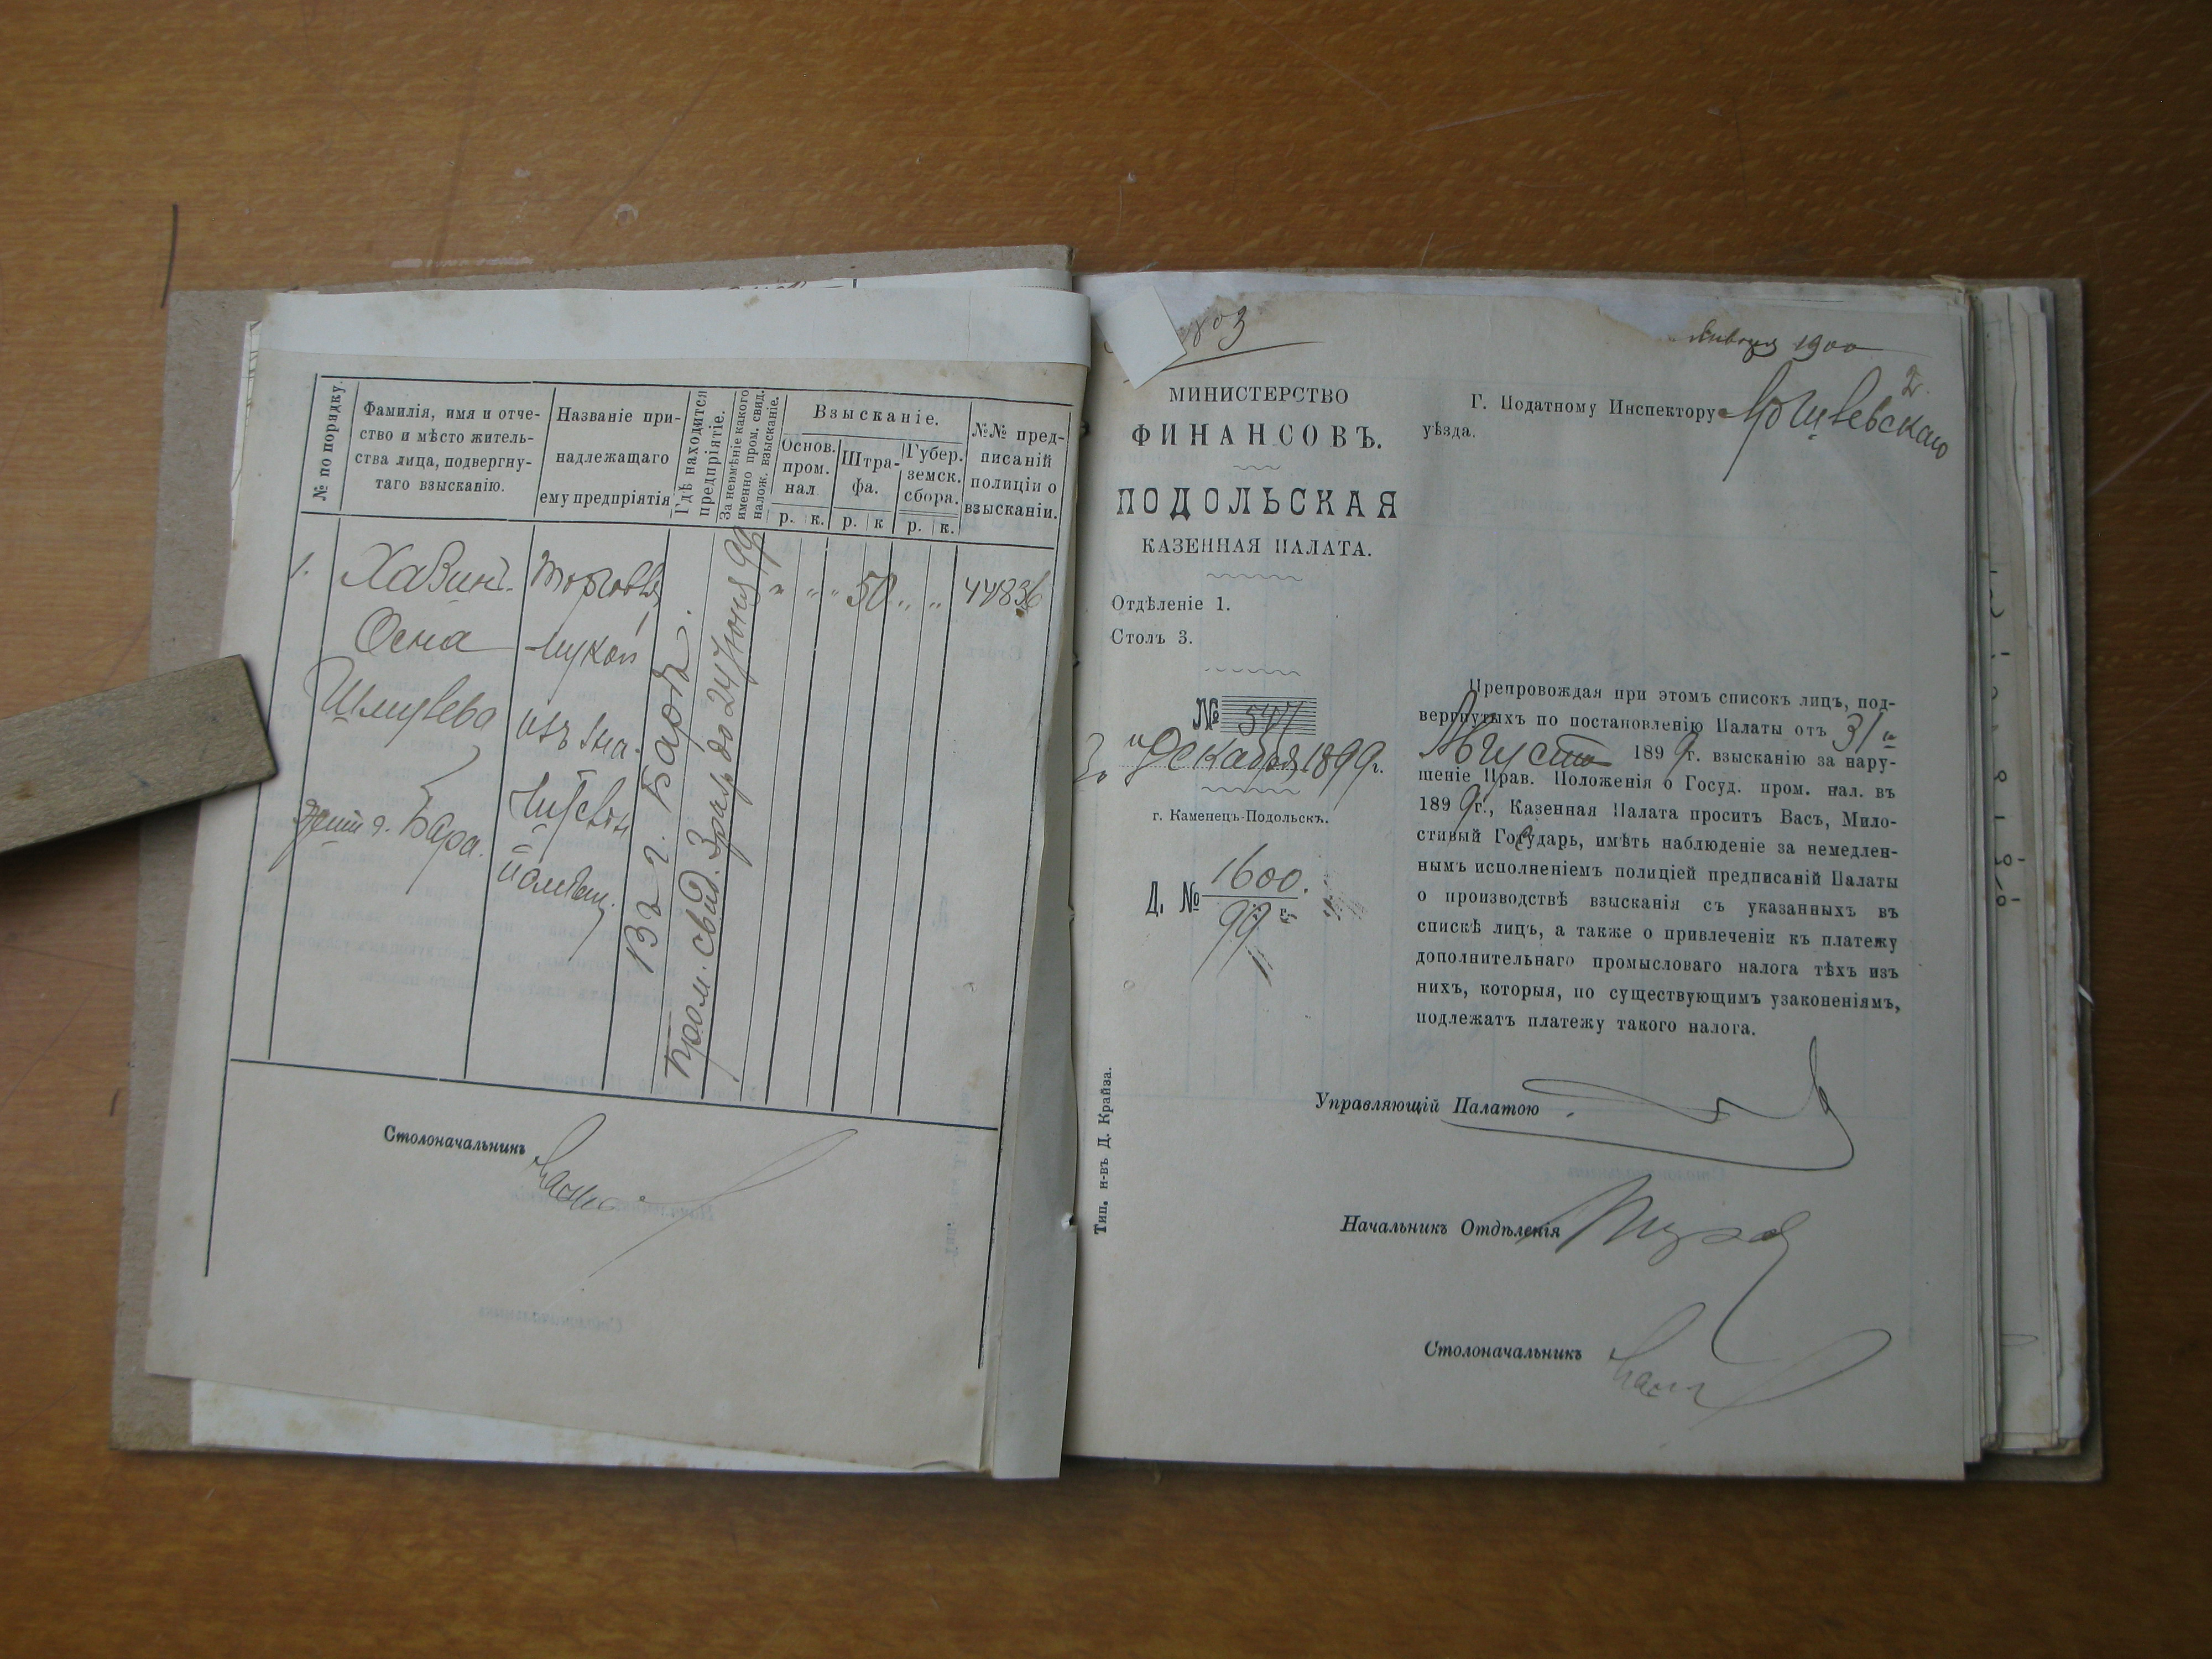 № по порядку.
Фамилія, имя и отче-
ство и мѣсто житель-
ства лица, подвергну-
таго взысканію.
Названіе при-
надлежащаго
ему предпріятія
Гдѣ находится
предпріятіе.
За неимѣніе какого
именно пром. свид.
налож. взысканіе.
Взысканіе.
Основ.
пром.
нал
Штра-
фа.
Губер.
земск.
сбора.
р. к. р. к р. к.
№№ пред-
писаній
полиціи о
взысканіи.
1.
Хавинъ
Осна
Шмулева
Торговля
мукой
изъ
помѣщ.
Въ г. Барѣ.
Пром. свид. 3 разр. до 24 Іюня 99
" " " 50 " "
44836
Столоначальникъ
803
Января 1900
2.
МИНИСТЕРСТВО
ФИНАНСОВЪ.
ПОДОЛЬСКАЯ
КАЗЕННАЯ ПАЛАТА.
Отдѣленіе 1.
Столъ 3.
№ 547
Декабря 1899 г.
г. Каменецъ-Подольскъ.
Д. № 1600.
99 г.
Г. Податному Инспектору Могилевскаго
уѣзда.
Препровождая при этомъ списокъ лицъ, под-
вергнутыхъ по постановленію Палаты отъ 31
Августа 1899 г. взысканію за нару-
шеніе Прав. Положенія о Госуд. пром. нал. въ
1899 г., Казенная Палата проситъ Васъ, Мило-
стивый Государь, имѣть наблюденіе за немедлен-
нымъ исполненіемъ полиціей предписаній Палаты
о производствѣ взысканія съ указанныхъ въ
спискѣ лицъ, а также о привлеченіи къ платежу
дополнительнаго промысловаго налога тѣхъ изъ
нихъ, которыя, по существующимъ узаконеніямъ,
подлежатъ платежу такого налога.
Управляющій Палатою
Начальникъ Отдѣленія
Столоначальникъ
Тип. н-въ Д. Крайза.